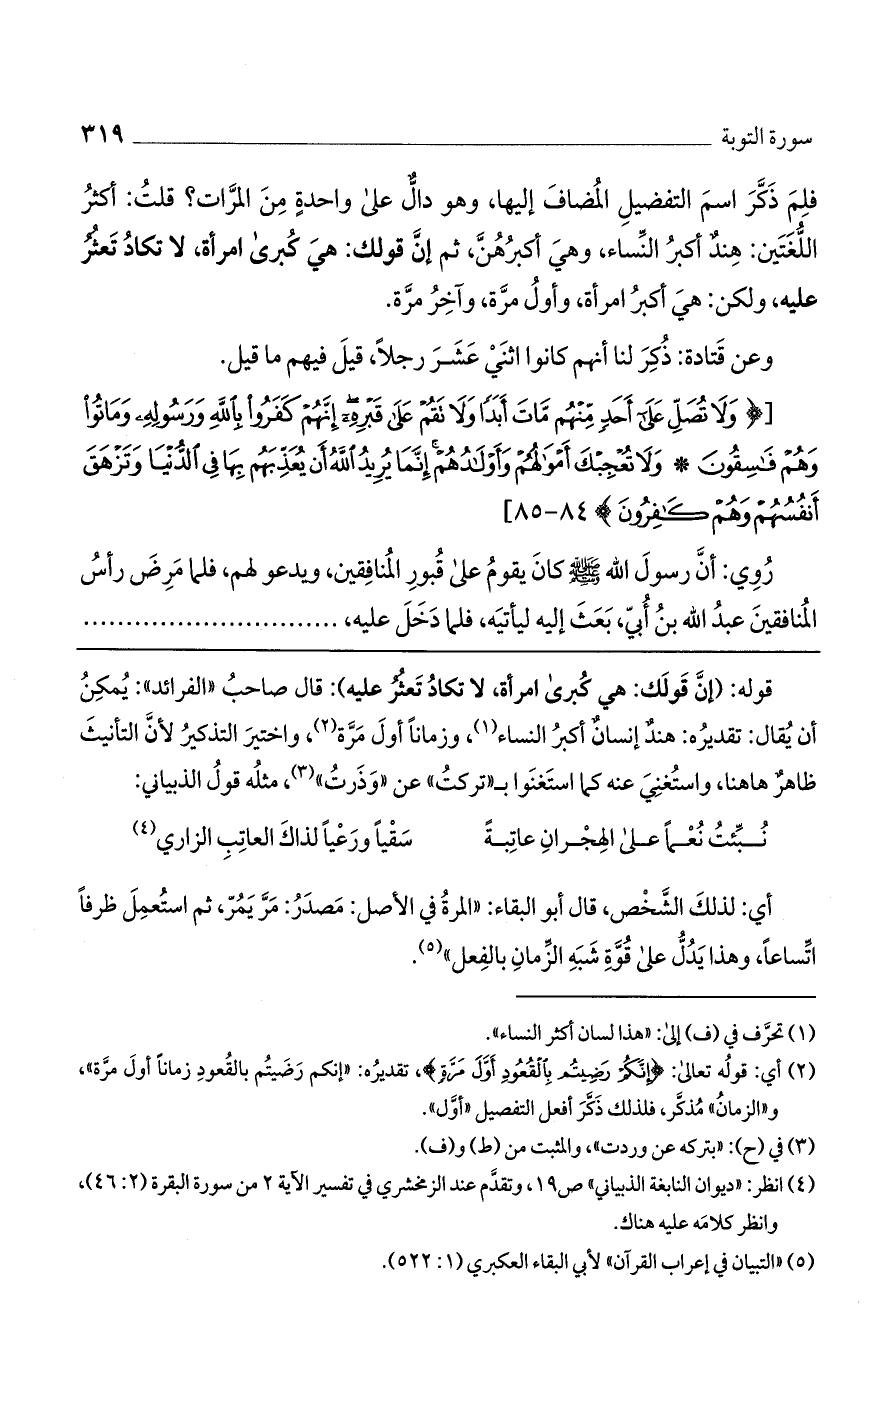 سورة التوبة ٣١٩
فلِمَ ذَكَّرَ اسمَ التفضيلِ المُضافَ إليها، وهو دالٌّ علىٰ واحدةٍ مِنَ المرَّات؟ قلتُ: أكثرُ
اللُّغَتَين: هِندٌ أكبرُ النِّساء، وهيَ أكبرُهُنَّ، ثم إنَّ قولك: هيَ كُبرىٰ امرأة، لا تكادُ تَعثُرُ
عليه، ولكن: هيَ أكبرُ امرأة، وأولُ مرَّة، وآخِرُ مرَّة.
وعن قَتادة: ذُكِرَ لنا أنهم كانوا اثنَيْ عَشَـرَ رجلاً، قيلَ فيهم ما قيل.
[﴿ وَلَا تُصَلِّ عَلَىٰٓ أَحَدٍ مِّنْهُم مَّاتَ أَبَدًا وَلَا تَقُمْ عَلَىٰ قَبْرِهِۦٓ ۖ إِنَّهُمْ كَفَرُوا۟ بِٱللَّهِ وَرَسُولِهِۦ وَمَاتُوا۟
وَهُمْ فَـٰسِقُونَ * وَلَا تُعْجِبْكَ أَمْوَٰلُهُمْ وَأَوْلَـٰدُهُمْ ۚ إِنَّمَا يُرِيدُ ٱللَّهُ أَن يُعَذِّبَهُم بِهَا فِى ٱلدُّنْيَا وَتَزْهَقَ
أَنفُسُهُمْ وَهُمْ كَـٰفِرُونَ ﴾ ٨٤-٨٥]
رُوِي: أنَّ رسولَ الله ﷺ كانَ يقومُ علىٰ قُبورِ المُنافِقين، ويدعو لهم، فلما مَرِضَ رأسُ
المُنافقينَ عبدُ الله بنُ أُبيّ، بَعَثَ إليه ليأتيَه، فلما دَخَلَ عليه، ..............................
قوله: (إنَّ قَولَك: هي كُبرىٰ امرأة، لا تكادُ تَعثُرُ عليه): قال صاحبُ «الفرائد»: يُمكِنُ
أن يُقال: تقديرُه: هندٌ إنسانٌ أكبرُ النساء(١)، وزماناً أولَ مَرَّة(٢)، واختيرَ التذكيرُ لأنَّ التأنيثَ
ظاهرٌ هاهنا، واستُغنِيَ عنه كما استَغنَوا بـ«تركتُ» عن «وَذَرتُ»(٣)، مثلُه قولُ الذبياني:
نُـبِّئتُ نُعْـماً عـلىٰ الهِجْـرانِ عاتِبـةً سَقْياً ورَعْياً لذاكَ العاتِبِ الزاري(٤)
أي: لذلكَ الشَّخْص، قال أبو البقاء: «المرةُ في الأصل: مَصدَرُ: مَرَّ يَمُرّ، ثم استُعمِلَ ظرفاً
اتِّساعاً، وهذا يَدُلُّ علىٰ قُوَّةِ شَبَهِ الزَّمانِ بالفِعل»(٥).
(١) تحرَّف في (ف) إلىٰ: «هذا لسان أكثر النساء».
(٢) أي: قولُه تعالىٰ: ﴿إِنَّكُمْ رَضِيتُم بِٱلْقُعُودِ أَوَّلَ مَرَّةٍ﴾، تقديرُه: «إنكم رَضَيتُم بالقُعودِ زماناً أولَ مرَّة»،
و«الزمانُ» مُذكَّر، فلذلك ذَكَّرَ أفعل التفصيل «أوَّل».
(٣) في (ح): «بتركه عن وردت»، والمثبت من (ط) و(ف).
(٤) انظر: «ديوان النابغة الذبياني» ص١٩، وتقدَّم عند الزمخشري في تفسير الآية ٢ من سورة البقرة (٢: ٤٦)،
وانظر كلامَه عليه هناك.
(٥) «التبيان في إعراب القرآن» لأبي البقاء العكبري (١: ٥٢٢).